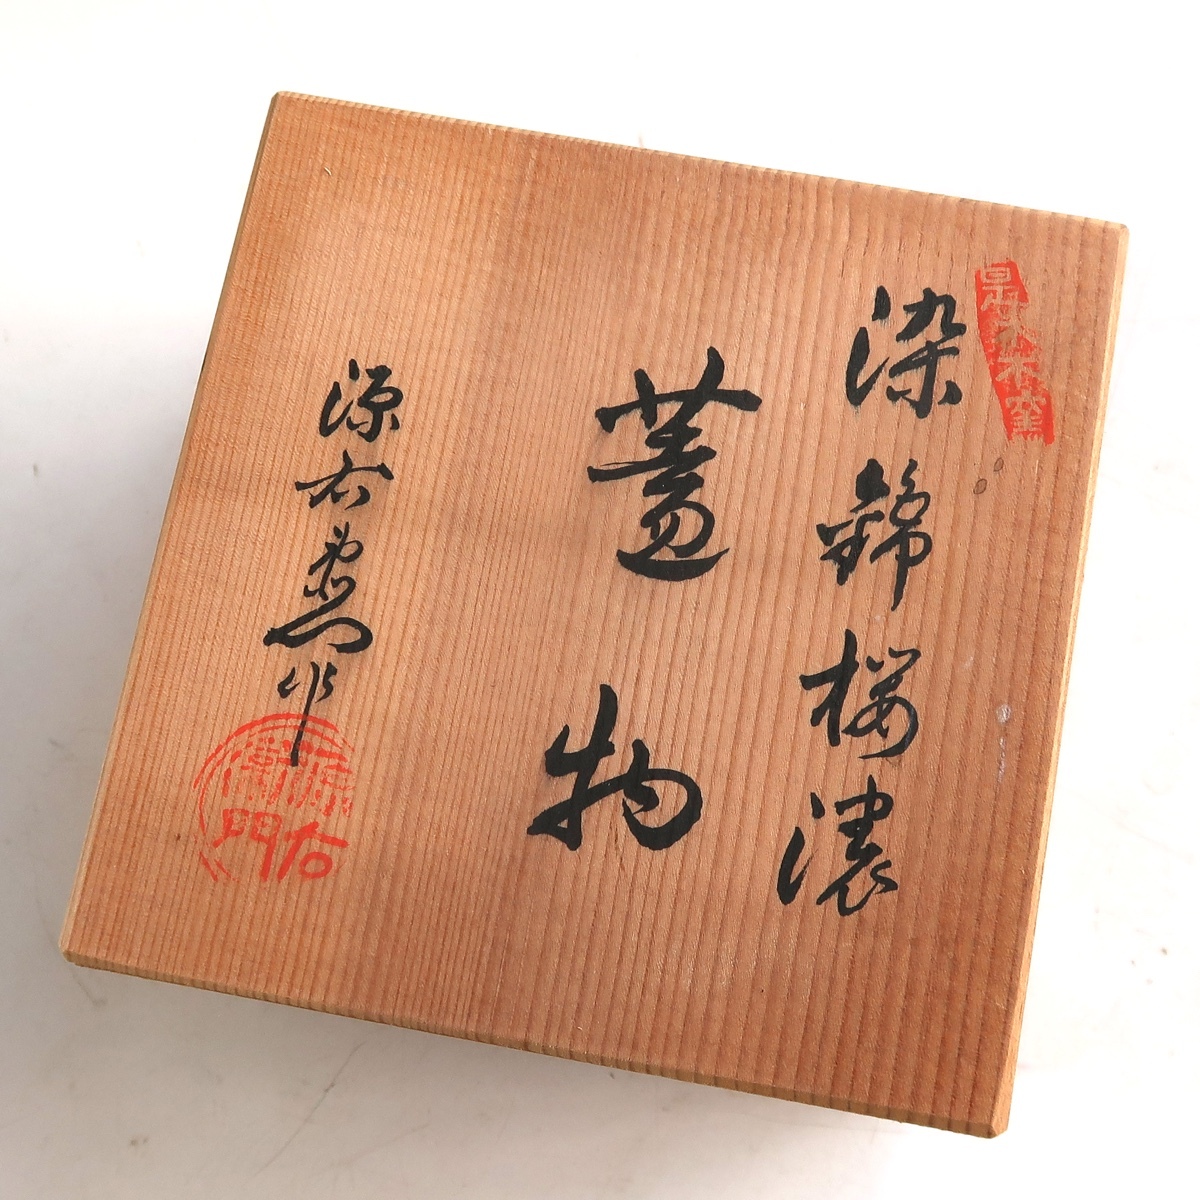 染錦桜濃
蓋物
源右衛門作
源右衛門